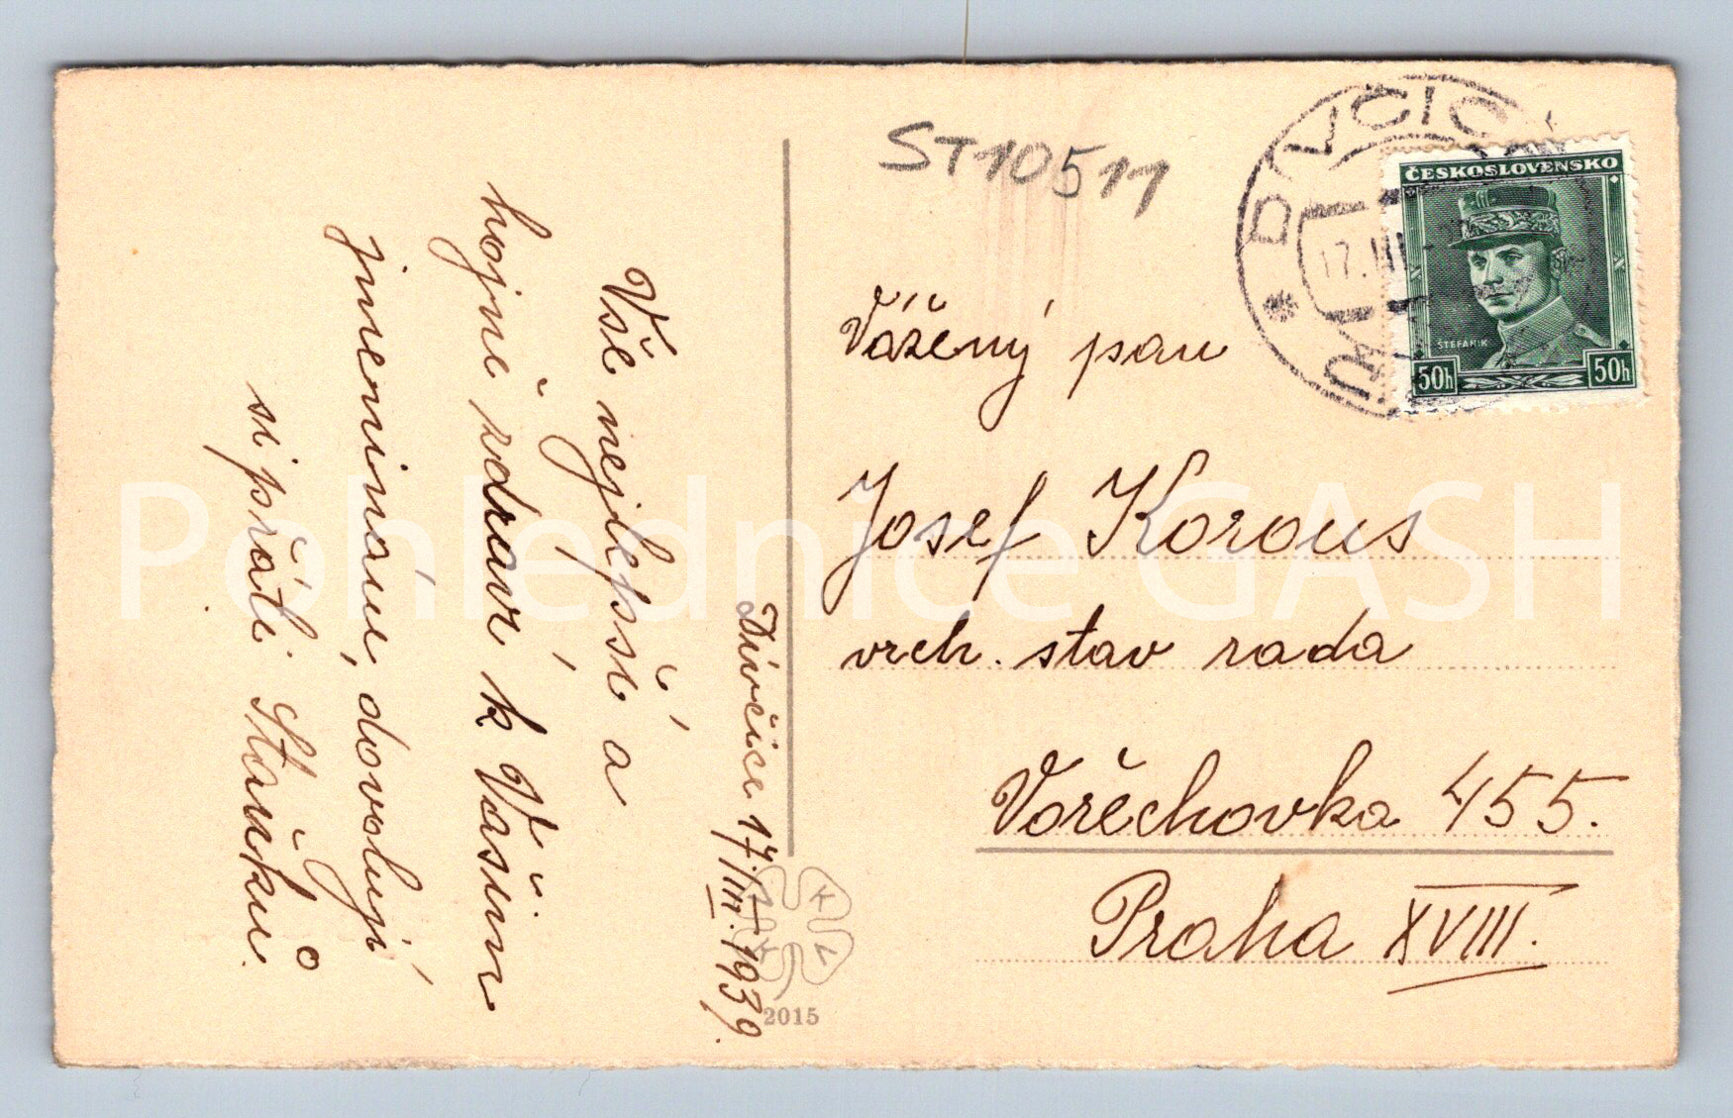 Dívčice 17./III. 1939.
Vše nejlepší a
hojně zdraví k Vašim
jmeninám, dovolují
si přáti Staňků.
ST10511
Vážený pan
Josef Korous
vrch. stav rada
Vořechovka 455.
Praha XVIII.
DÍVČIC
17.III
ČESKOSLOVENSKO
ŠTEFÁNIK
50h 50h
K L
2015
Pohlednice GASH